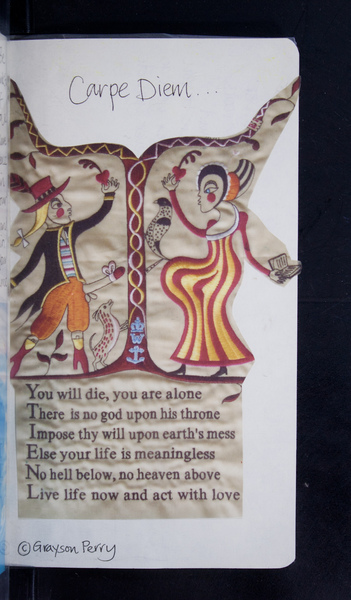 Carpe Diem...
W
You will die, you are alone
There is no god upon his throne
Impose thy will upon earth's mess
Else your life is meaningless
No hell below, no heaven above
Live life now and act with love
© Grayson Perry